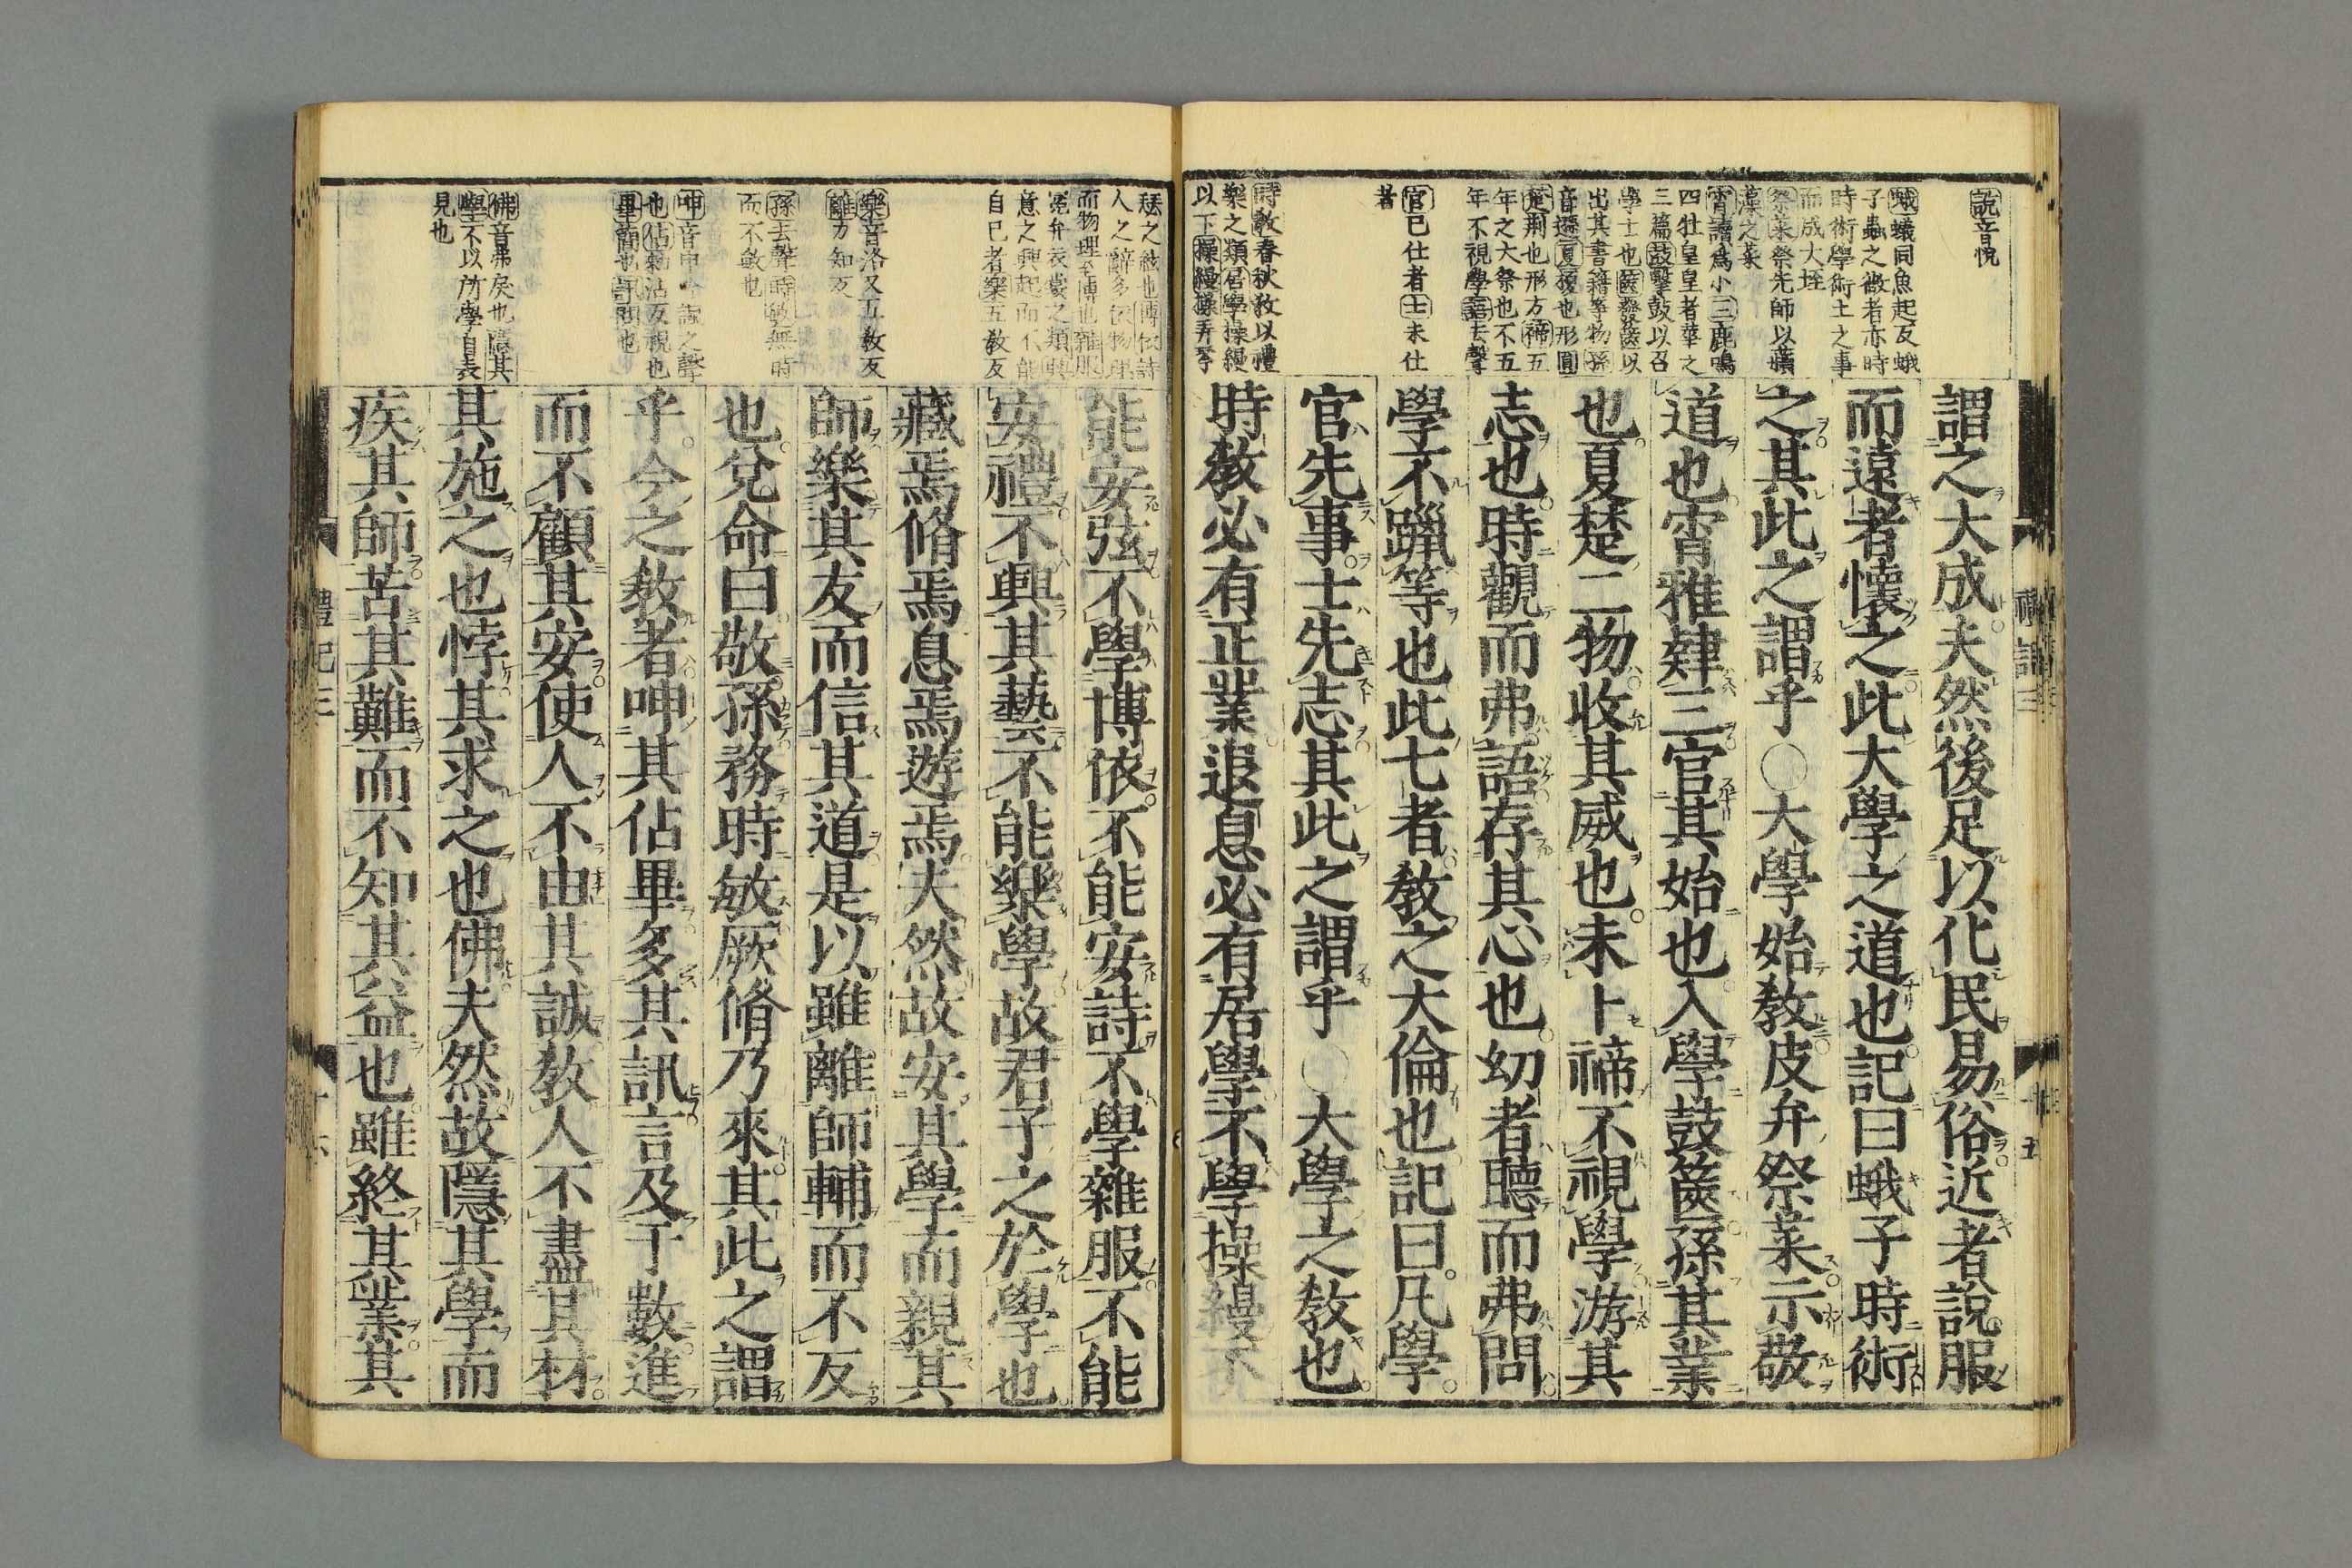 說音悅
蛾蟻同魚起反蛾
子蟲之微者亦時
時術學術土之事
而成大垤
祭菜祭先師以蘋
藻之菜
宵讀爲小三鹿鳴
四牡皇皇者華之
三篇鼓擊鼓以召
學士也篋發篋以
出其書籍等物孫
音遜夏榎也形圓
楚荆也形方禘五
年之大祭也不五
年不視學語去聲
官已仕者士未仕
者
時敎春秋敎以禮
樂之類居學操縵
以下操縵操弄琴
謂之大成夫然後足以化民易俗近者說服
而遠者懷之此大學之道也記曰蛾子時術
之其此之謂乎○大學始敎皮弁祭菜示敬
道也宵雅肄三官其始也入學鼓篋孫其業
也夏楚二物收其威也未卜禘不視學游其
志也時觀而弗語存其心也幼者聽而弗問
學不躐等也此七者敎之大倫也記曰凡學
官先事士先志其此之謂乎○大學之敎也
時敎必有正業退息必有居學不學操縵不
禮記三
瑟之絃也博依詩
人之辭多依物理
而物理至博也雜服
冕弁衣裳之類興
意之興起而不能
自已者樂五敎反
樂音洛又五敎反
離力知反
孫去聲時敏無時
而不敏也
呻音申吟諷之聲
也佔敕沾反視也
畢簡也訊問也
佛音弗戾也隱其
學不以所學自表
見也
能安弦不學博依不能安詩不學雜服不能
安禮不興其藝不能樂學故君子之於學也
藏焉脩焉息焉遊焉夫然故安其學而親其
師樂其友而信其道是以雖離師輔而不反
也兌命曰敬孫務時敏厥脩乃來其此之謂
乎今之敎者呻其佔畢多其訊言及于數進
而不顧其安使人不由其誠敎人不盡其材
其施之也悖其求之也佛夫然故隱其學而
疾其師苦其難而不知其益也雖終其業其
禮記三